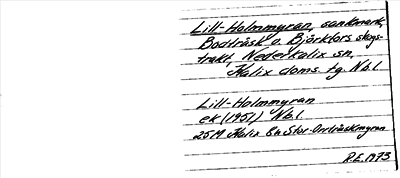 Lill-Holmmyran, sankmark,
Bodträsk o. Björkfors skogs-
trakt, Nederkalix sn,
Kalix doms. tg. Nb.l.
Lill-Holmmyran
ek (1951) Nb.l
25M Kalix 6n Stor-Orrträskmyran
R.E. 1973